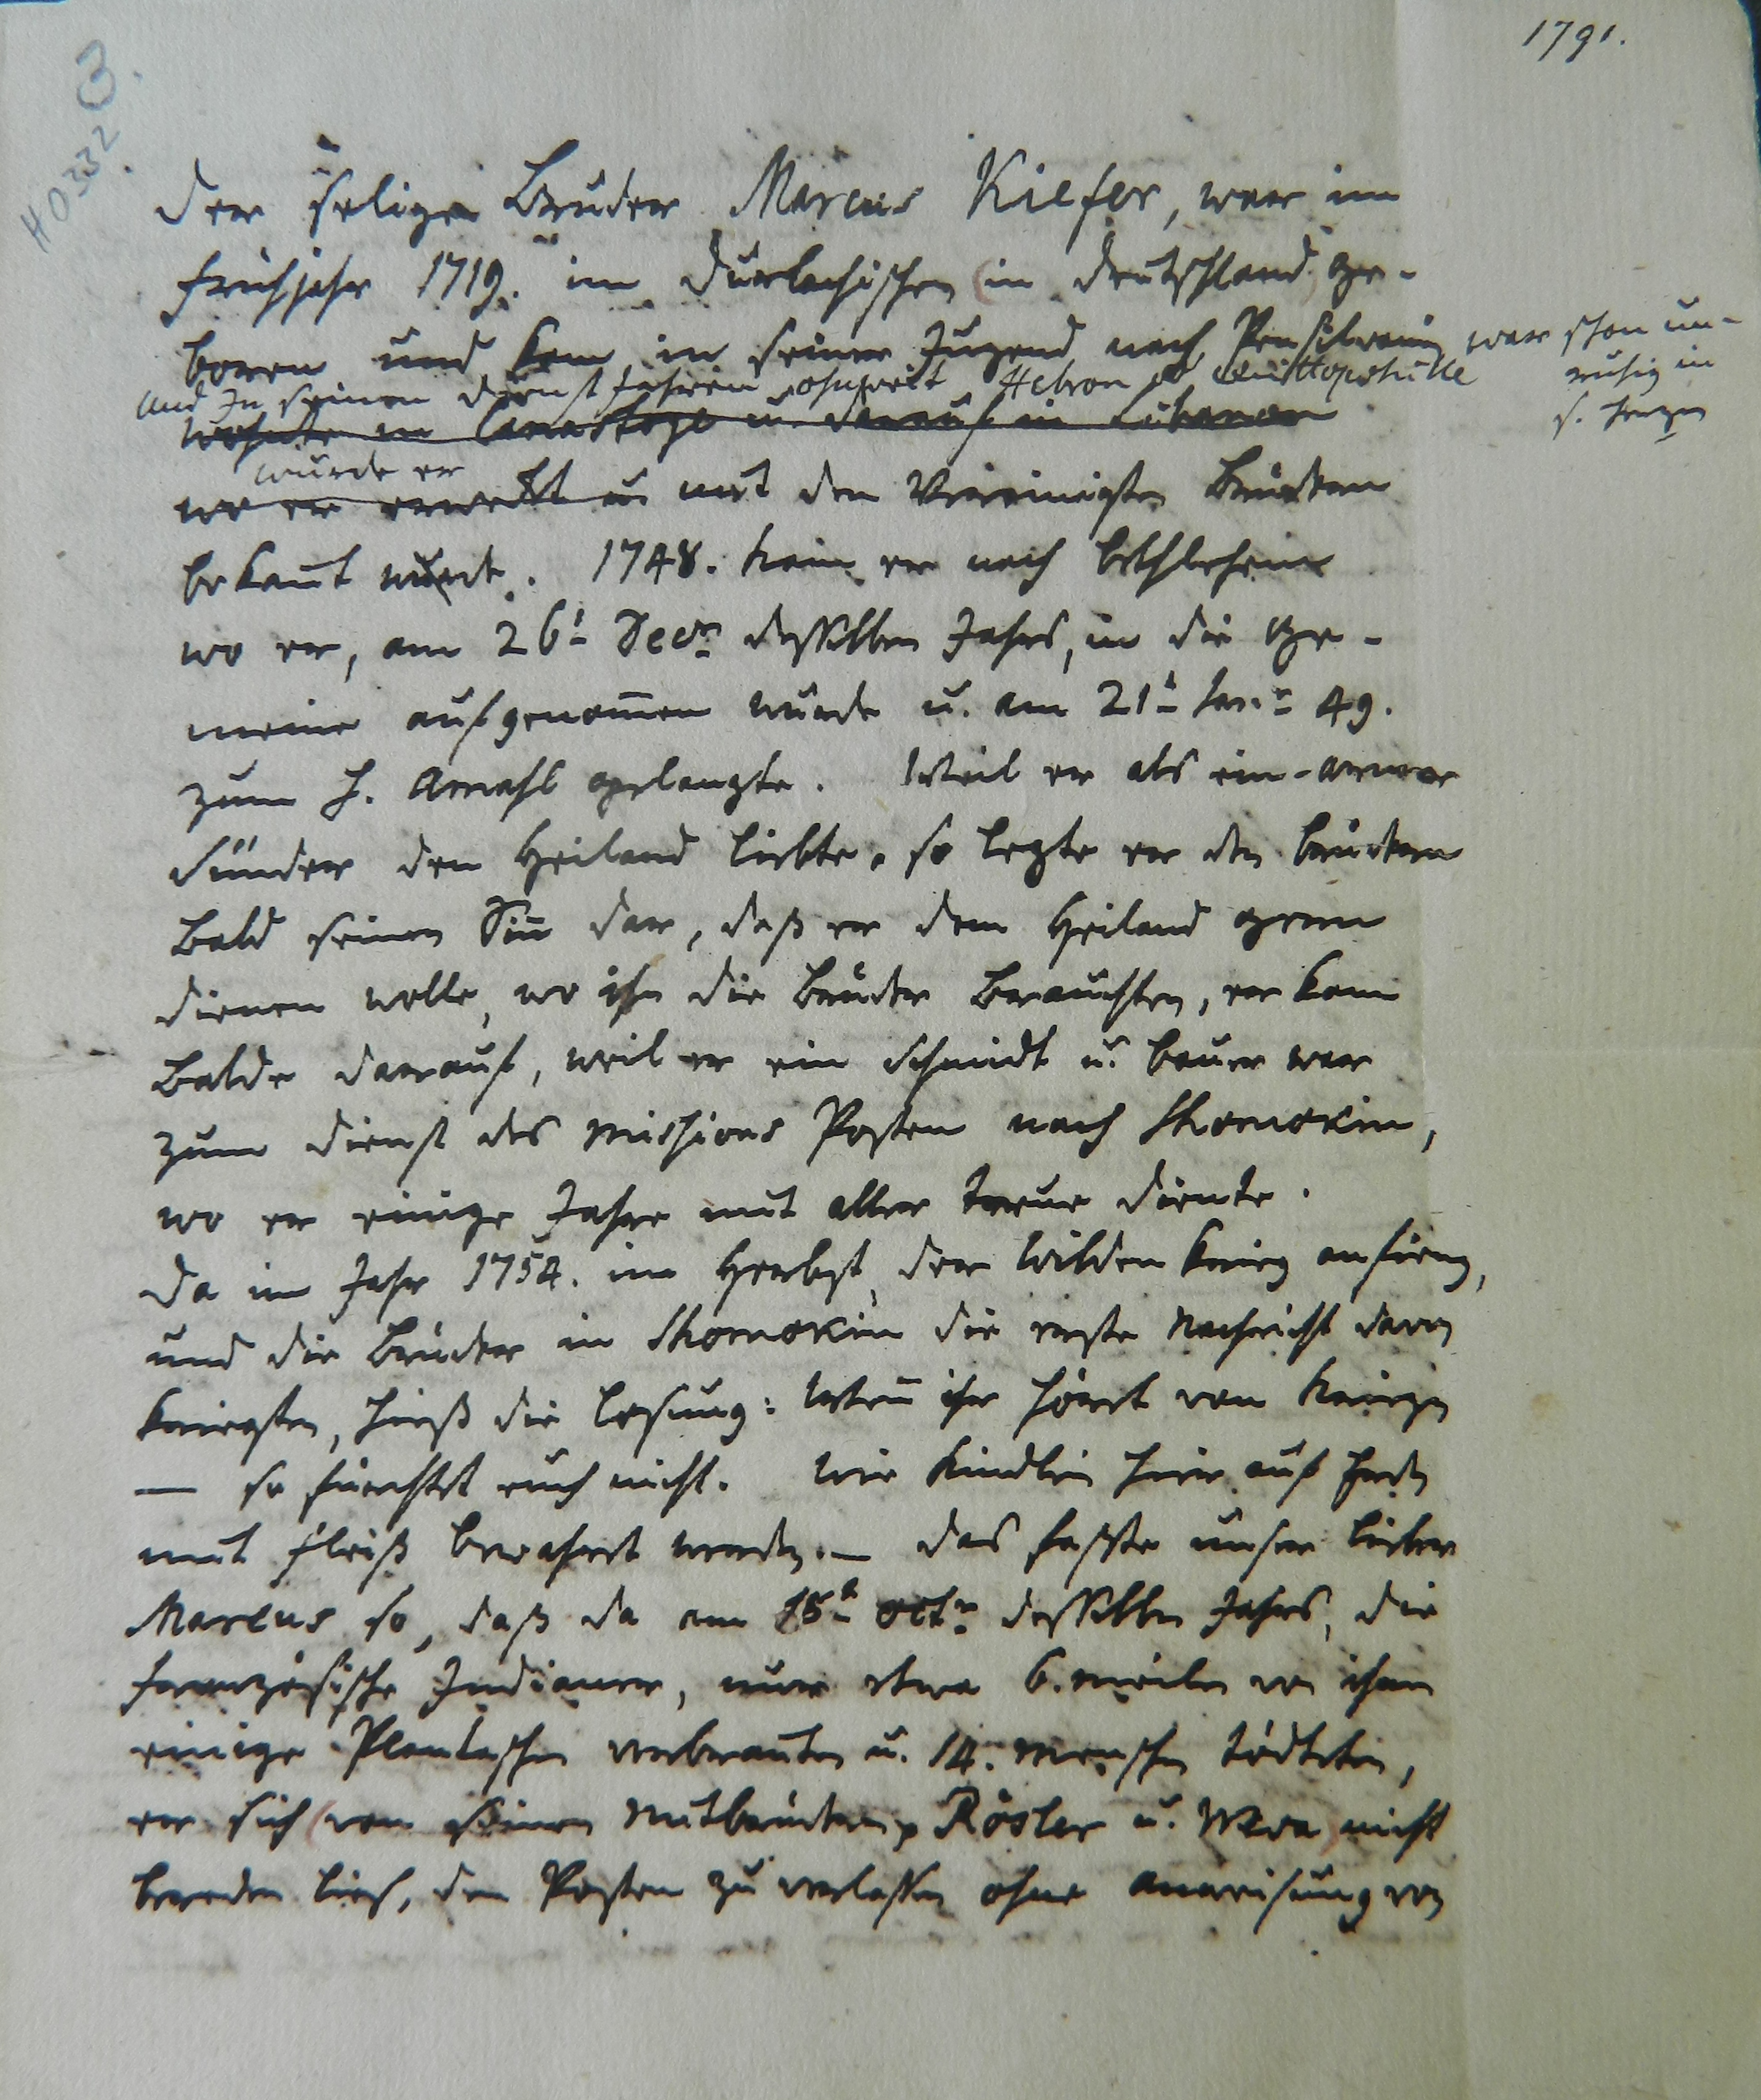 1791.
H 0332
3.
Der selige Bruder Marcus Kiefer, war im
Frühjahr 1719. im Durlachischen (in Deutschland) ge-
boren und kam in seiner Jugend nach Pensilvanien war schon un-
ruhig in
s. Herzen
und in seinen Dienstjahren ohnweit Hebron
wohnte in Canastoge u. darauf in Libanon
wurde er
wo er erweckt u. mit den Vereinigten Brüdern
bekant wurde. 1748. kam er nach Bethlehem
wo er, am 26t Decr desselben Jahrs, in die Ge-
meine aufgenom̄en wurde u. am 21t Janr 49.
zum H. Amahl gelangte. Weil er als ein armer
Sünder den Heiland liebte, so legte er den Brüdern
bald seinen Sin̄ dar, daß er dem Heiland gern
dienen wolle, wo ihn die Brüder brauchten, er kam
balde darauf, weil er ein Schmidt u. Bauer war
zum Dienst des Missions Posten nach Shomokin,
wo er einige Jahre mit aller Treue diente.
Da im Jahr 1754. im Herbst, der Wilden Krieg anfieng,
und die Brüder in Shomokin die erste Nachricht davon
kriegten, hieß die Losung: Wen̄ ihr höret von Kriegen
— so fürchtet euch nicht. Wie Kindlein hier auf Erden
mit Fleiß bewahret werden. — Das faßte unser lieber
Marcus so, daß da am 15t Octr desselben Jahrs, die
französische Indianer, nur etwa 6. Meilen von ihm
einige Plantaschen verbranten u. 14. Menschen tödteten,
er sich (von seinen Mitbrüdern, Rösler u. Wesa) nicht
bereden ließ, den Posten zu verlassen ohne Anweisung von